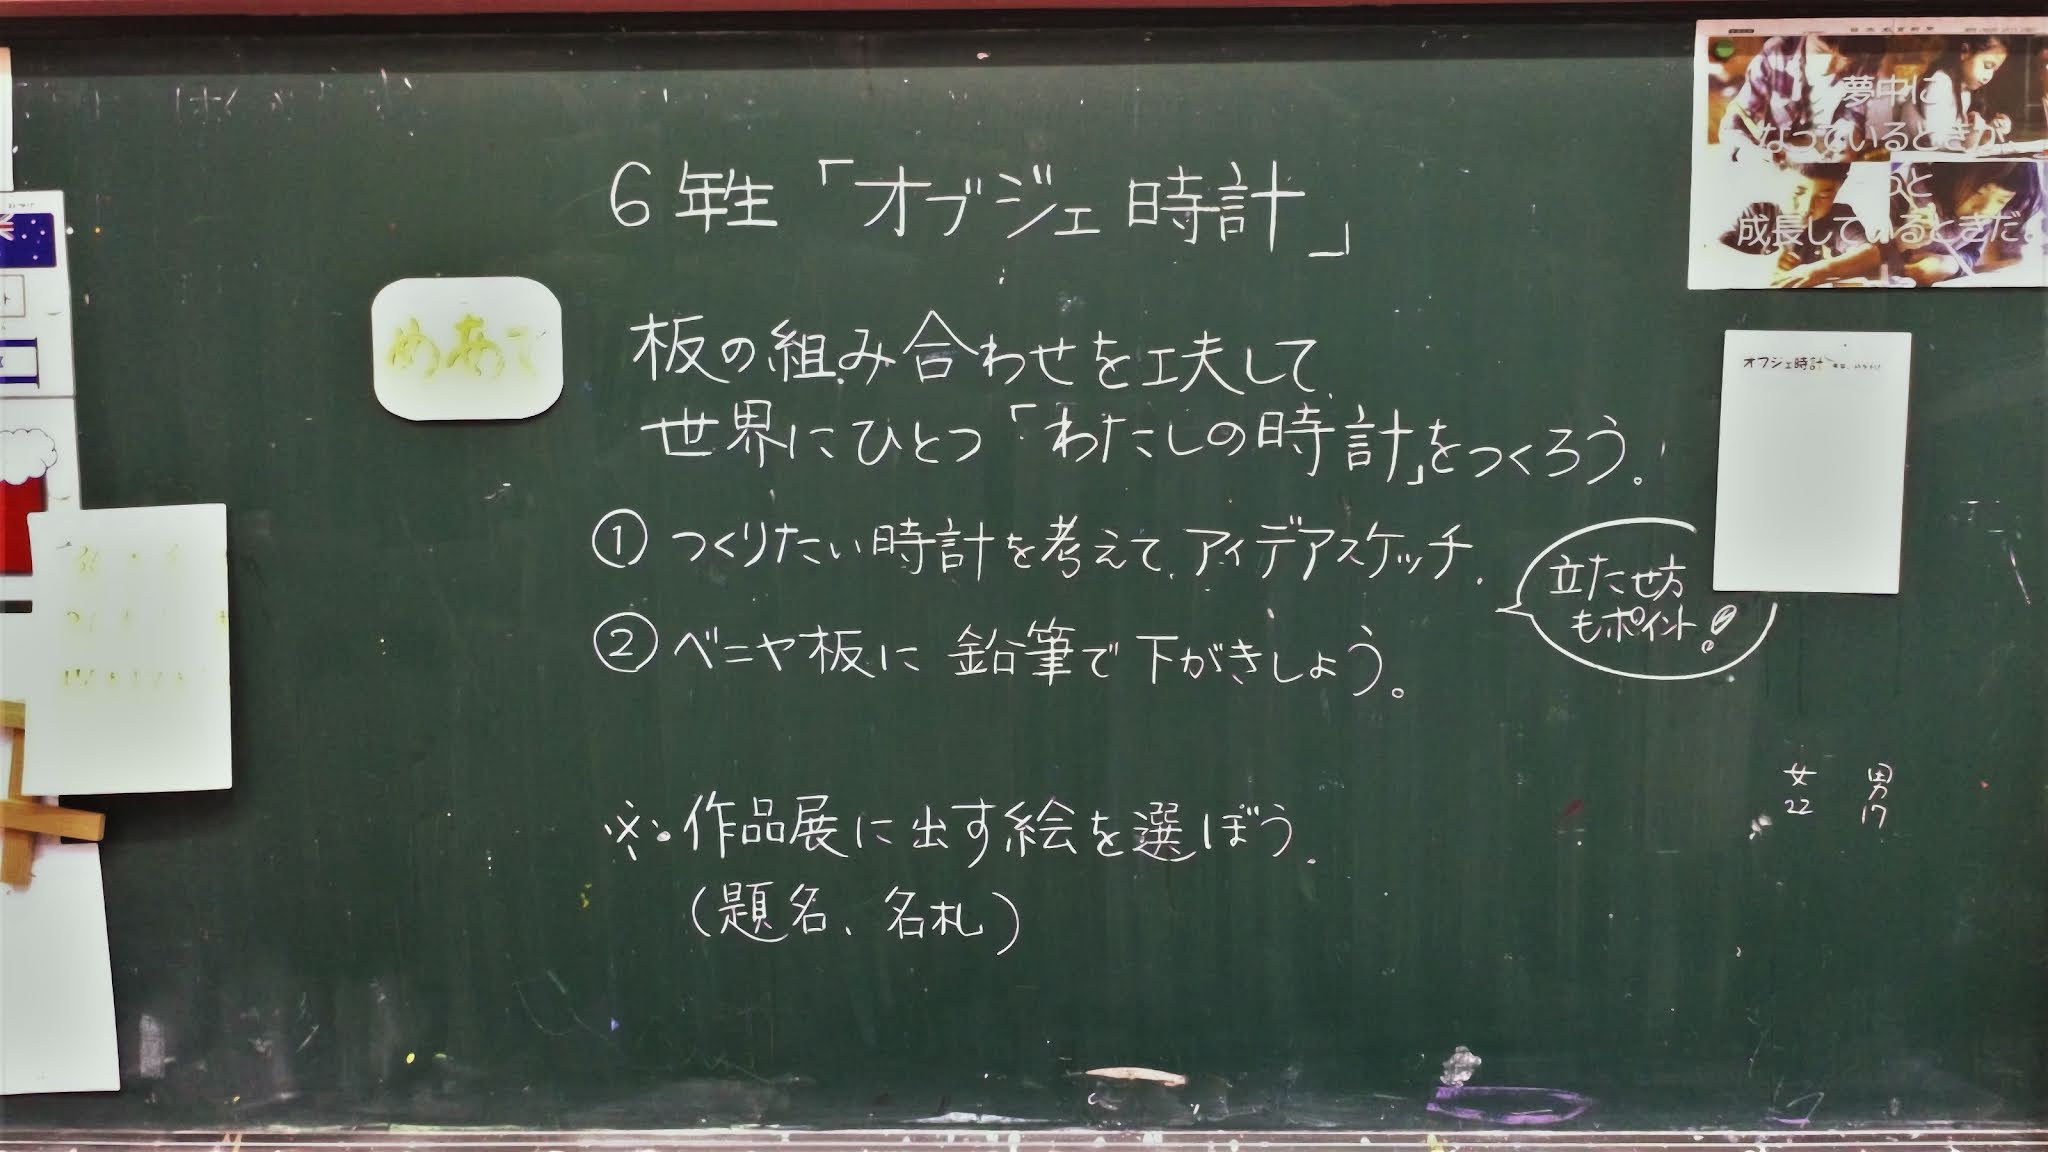 6年生「オブジェ時計」
めあて
板の組み合わせを工夫して
世界にひとつ「わたしの時計」をつくろう。
① つくりたい時計を考えて、アイデアスケッチ.
立たせ方
もポイント!
② ベニヤ板に 鉛筆で下がきしよう。
※作品展に出す絵を選ぼう.
(題名、名札)
夢中に
なっているときが、
っと
成長しているときだ。
オブジェ時計
女 男
22 17